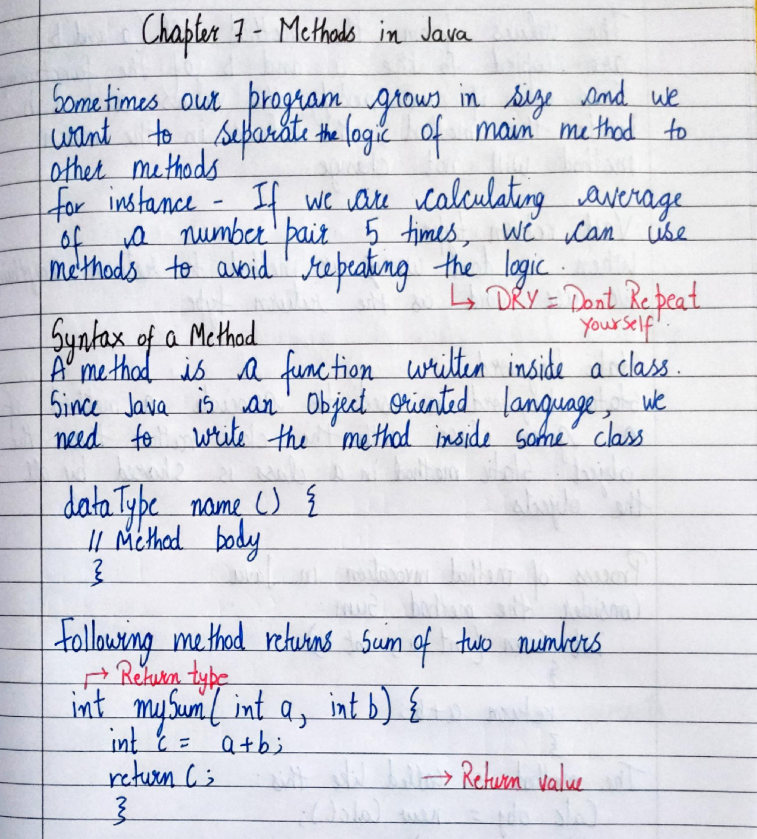 Chapter 7 - Methods in Java
Sometimes our program grows in size and we
want to separate the logic of main method to
other methods
for instance - If we are calculating average
of a number pair 5 times, we can use
methods to avoid repeating the logic.
↳ DRY = Dont Repeat
yourself.
Syntax of a Method
A method is a function written inside a class.
Since Java is an Object Oriented language, we
need to write the method inside some class
dataType name () {
// Method body
}
Following method returns sum of two numbers
↱ Return type
int mySum( int a, int b) {
int c = a+b;
return c; → Return value
}